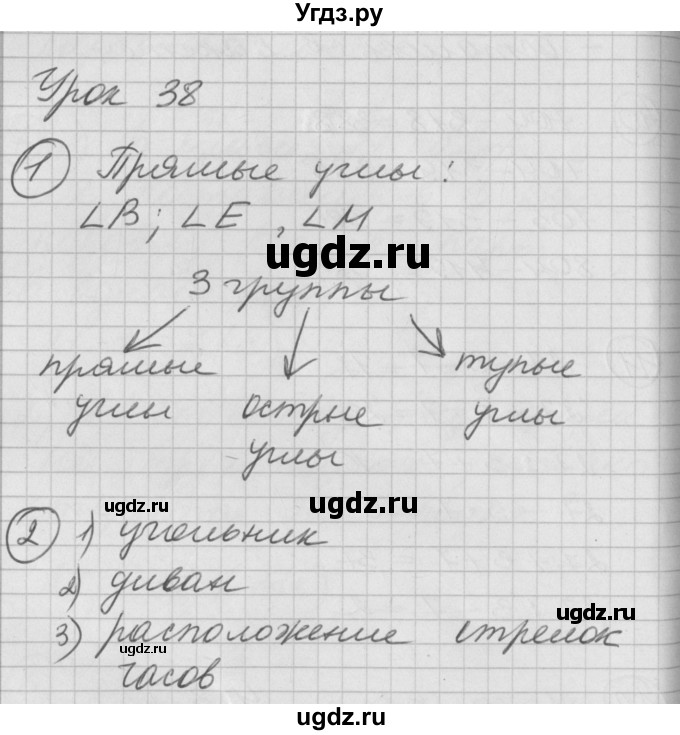 Угдз.ру
Урок 38
1 Прямые углы:
∠B; ∠E, ∠M
ugdz.ru
3 группы
прямые углы
острые углы
тупые углы
ugdz.ru
ugdz.ru
2 1) угольник
2) диван
ugdz.ru
3) расположение стрелок
ugdz.ru
часов
ugdz.ru